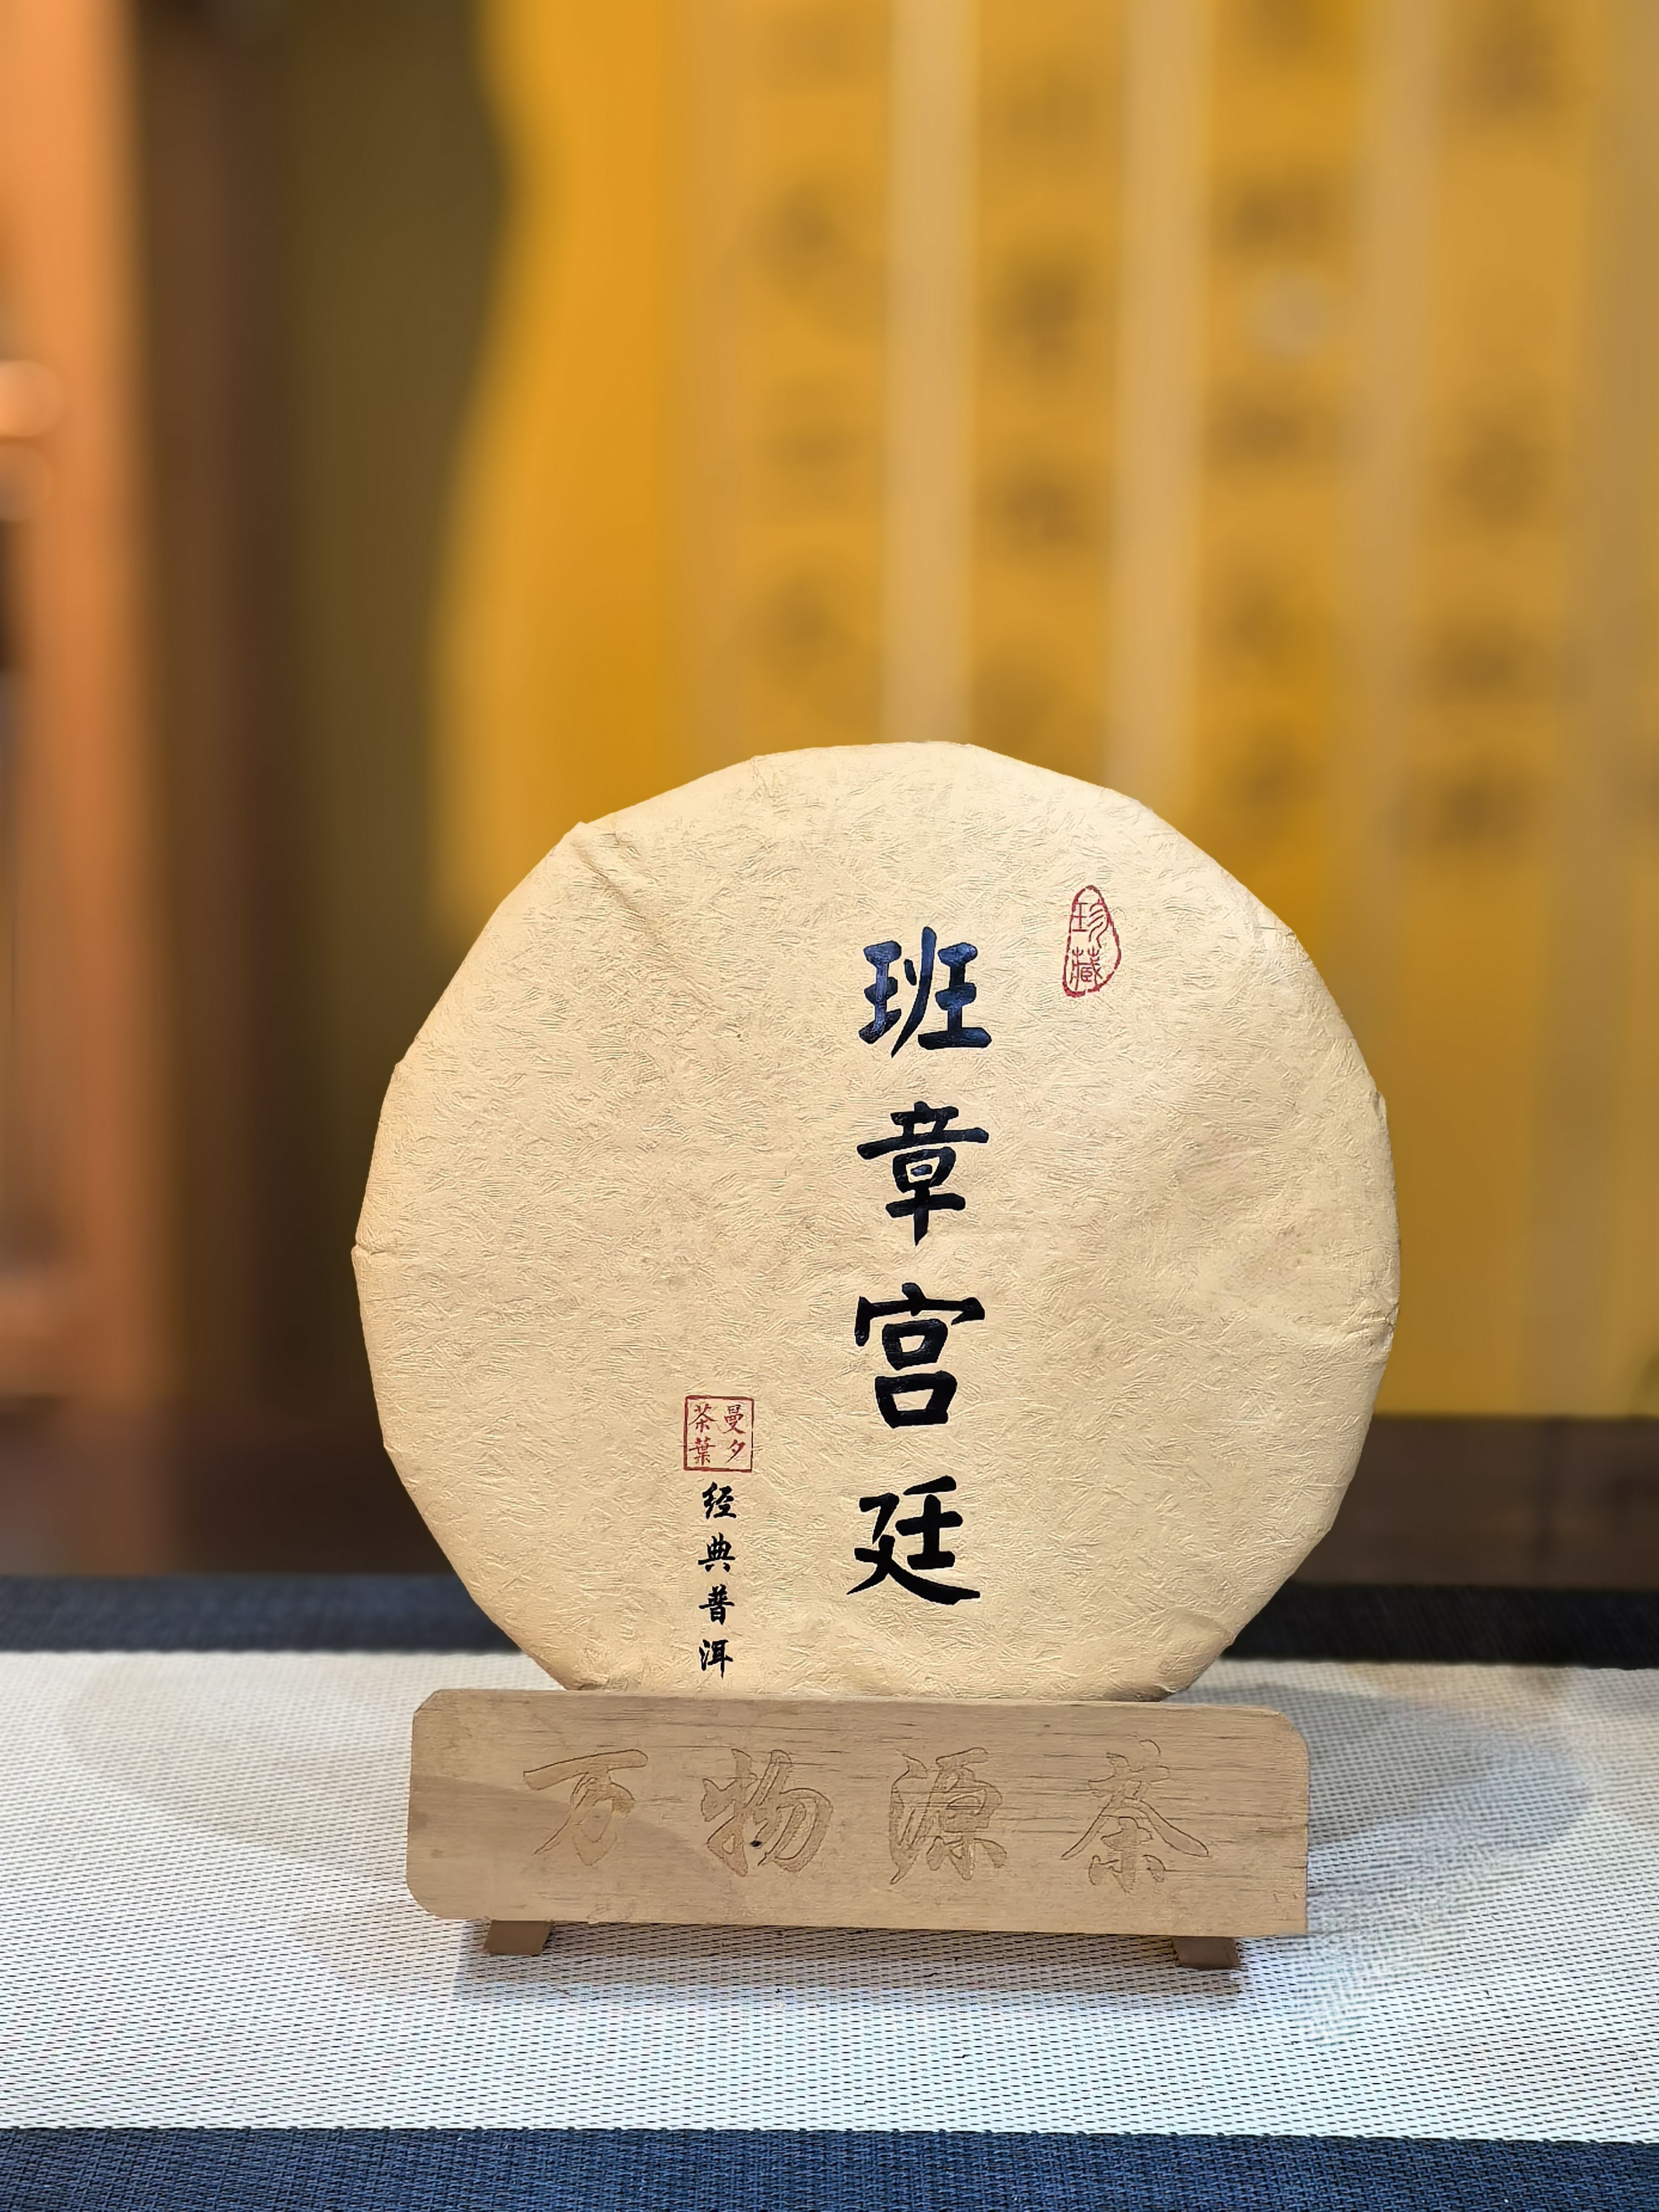 珍藏
班章宫廷
曼夕茶葉
经典普洱
万物源茶